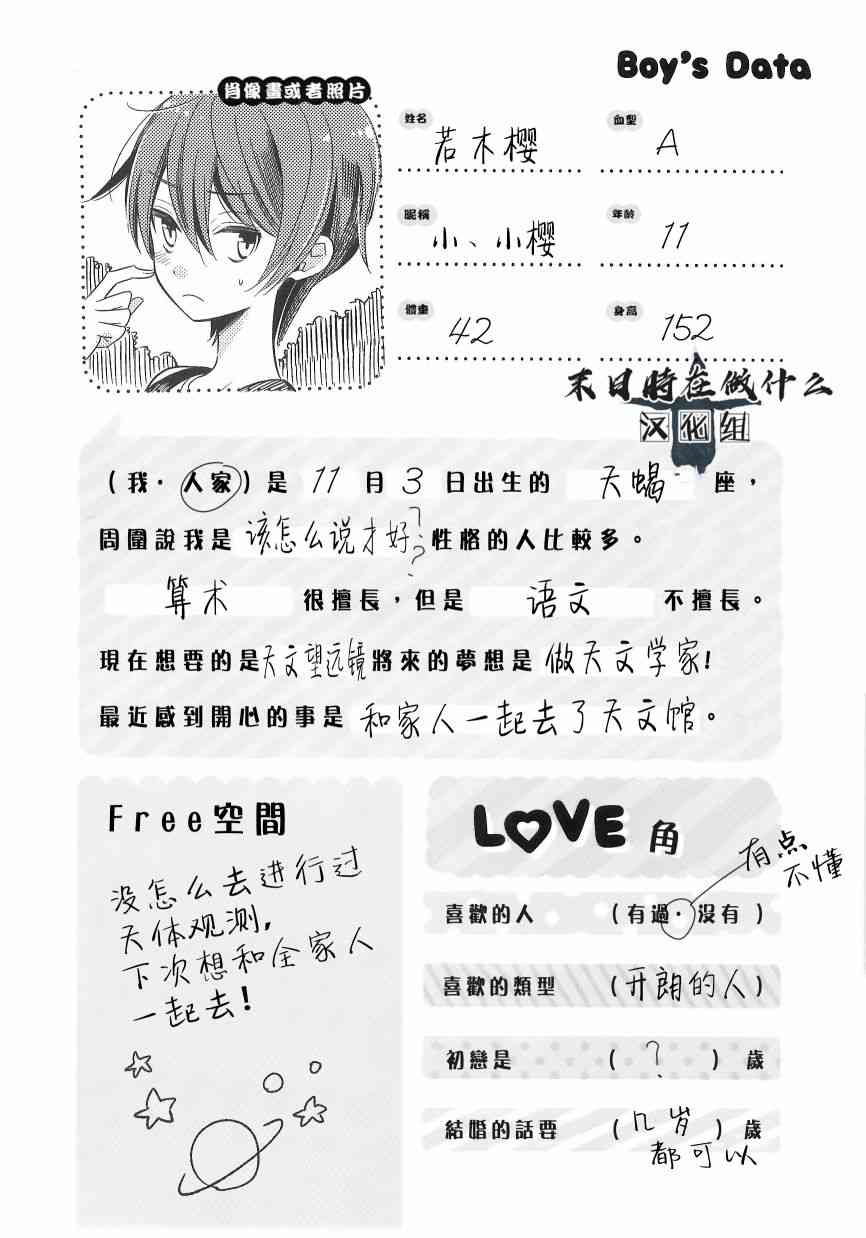 Boy's Data
肖像畫或者照片
姓名 若木樱
血型 A
昵稱 小、小樱
年龄 11
體重 42
身高 152
末日時在做什么
汉化组
(我·人家)是 11 月 3 日出生的 天蝎 座，
周圍說我是 该怎么说才好?? 性格的人比較多。
算术 很擅長，但是 语文 不擅長。
現在想要的是天文望远镜將來的夢想是 做天文学家!
最近感到開心的事是 和家人一起去了天文馆。
Free空間
没怎么去进行过
天体观测,
下次想和全家人
一起去!
LOVE角
有点
不懂
喜歡的人 (有過·没有)
喜歡的類型 (开朗的人)
初戀是 (?) 歲
結婚的話要 (几岁) 歲
都可以